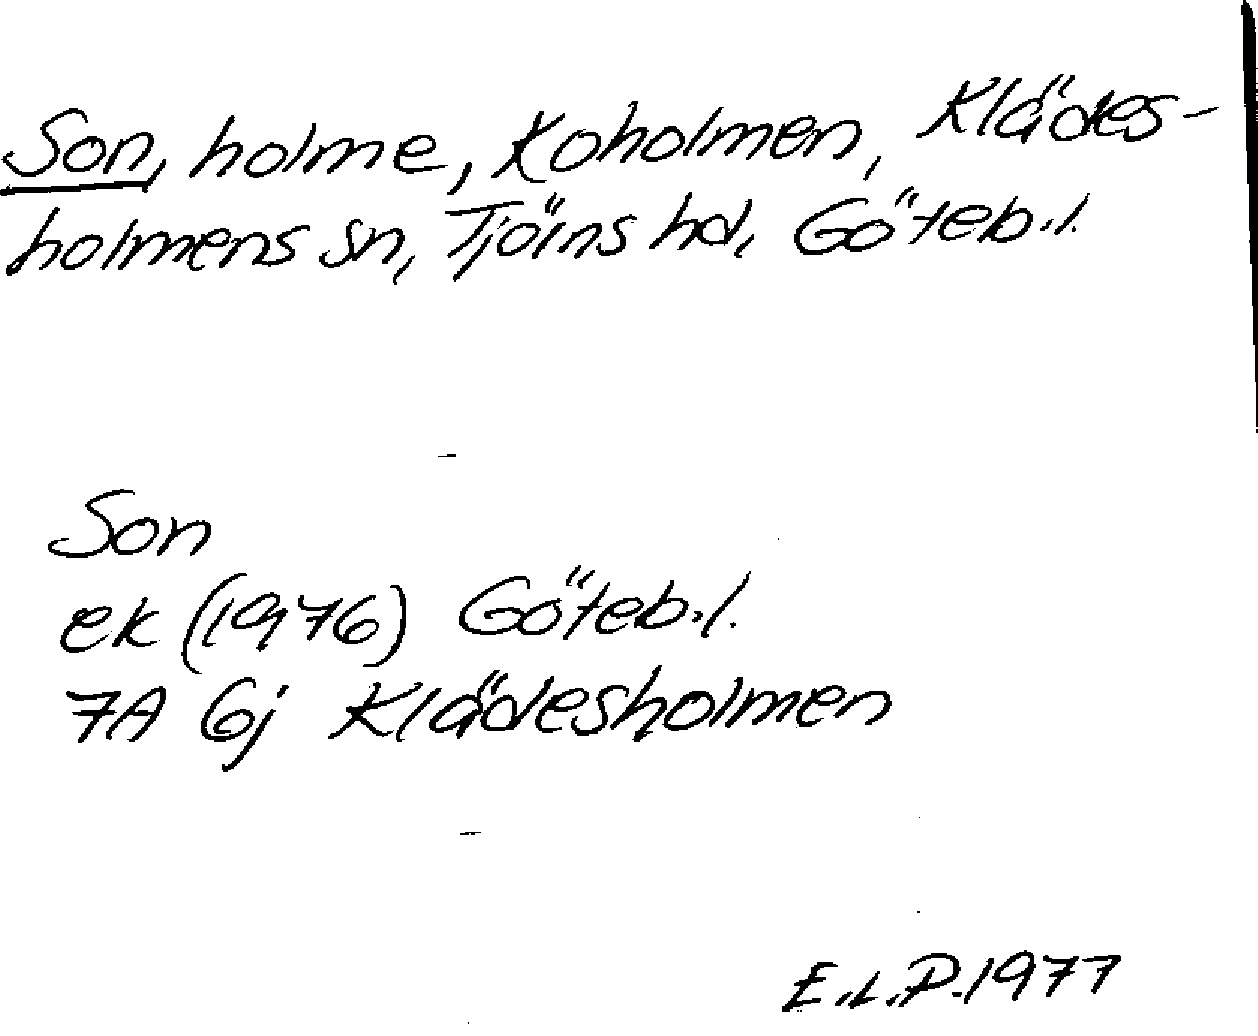 Son, holme, Koholmen, Klädes-
holmens sn, Tjörns hd, Göteb.l.
Son
ek (1976) Göteb.l.
7A 6j Klädesholmen
E.L.P. 1977